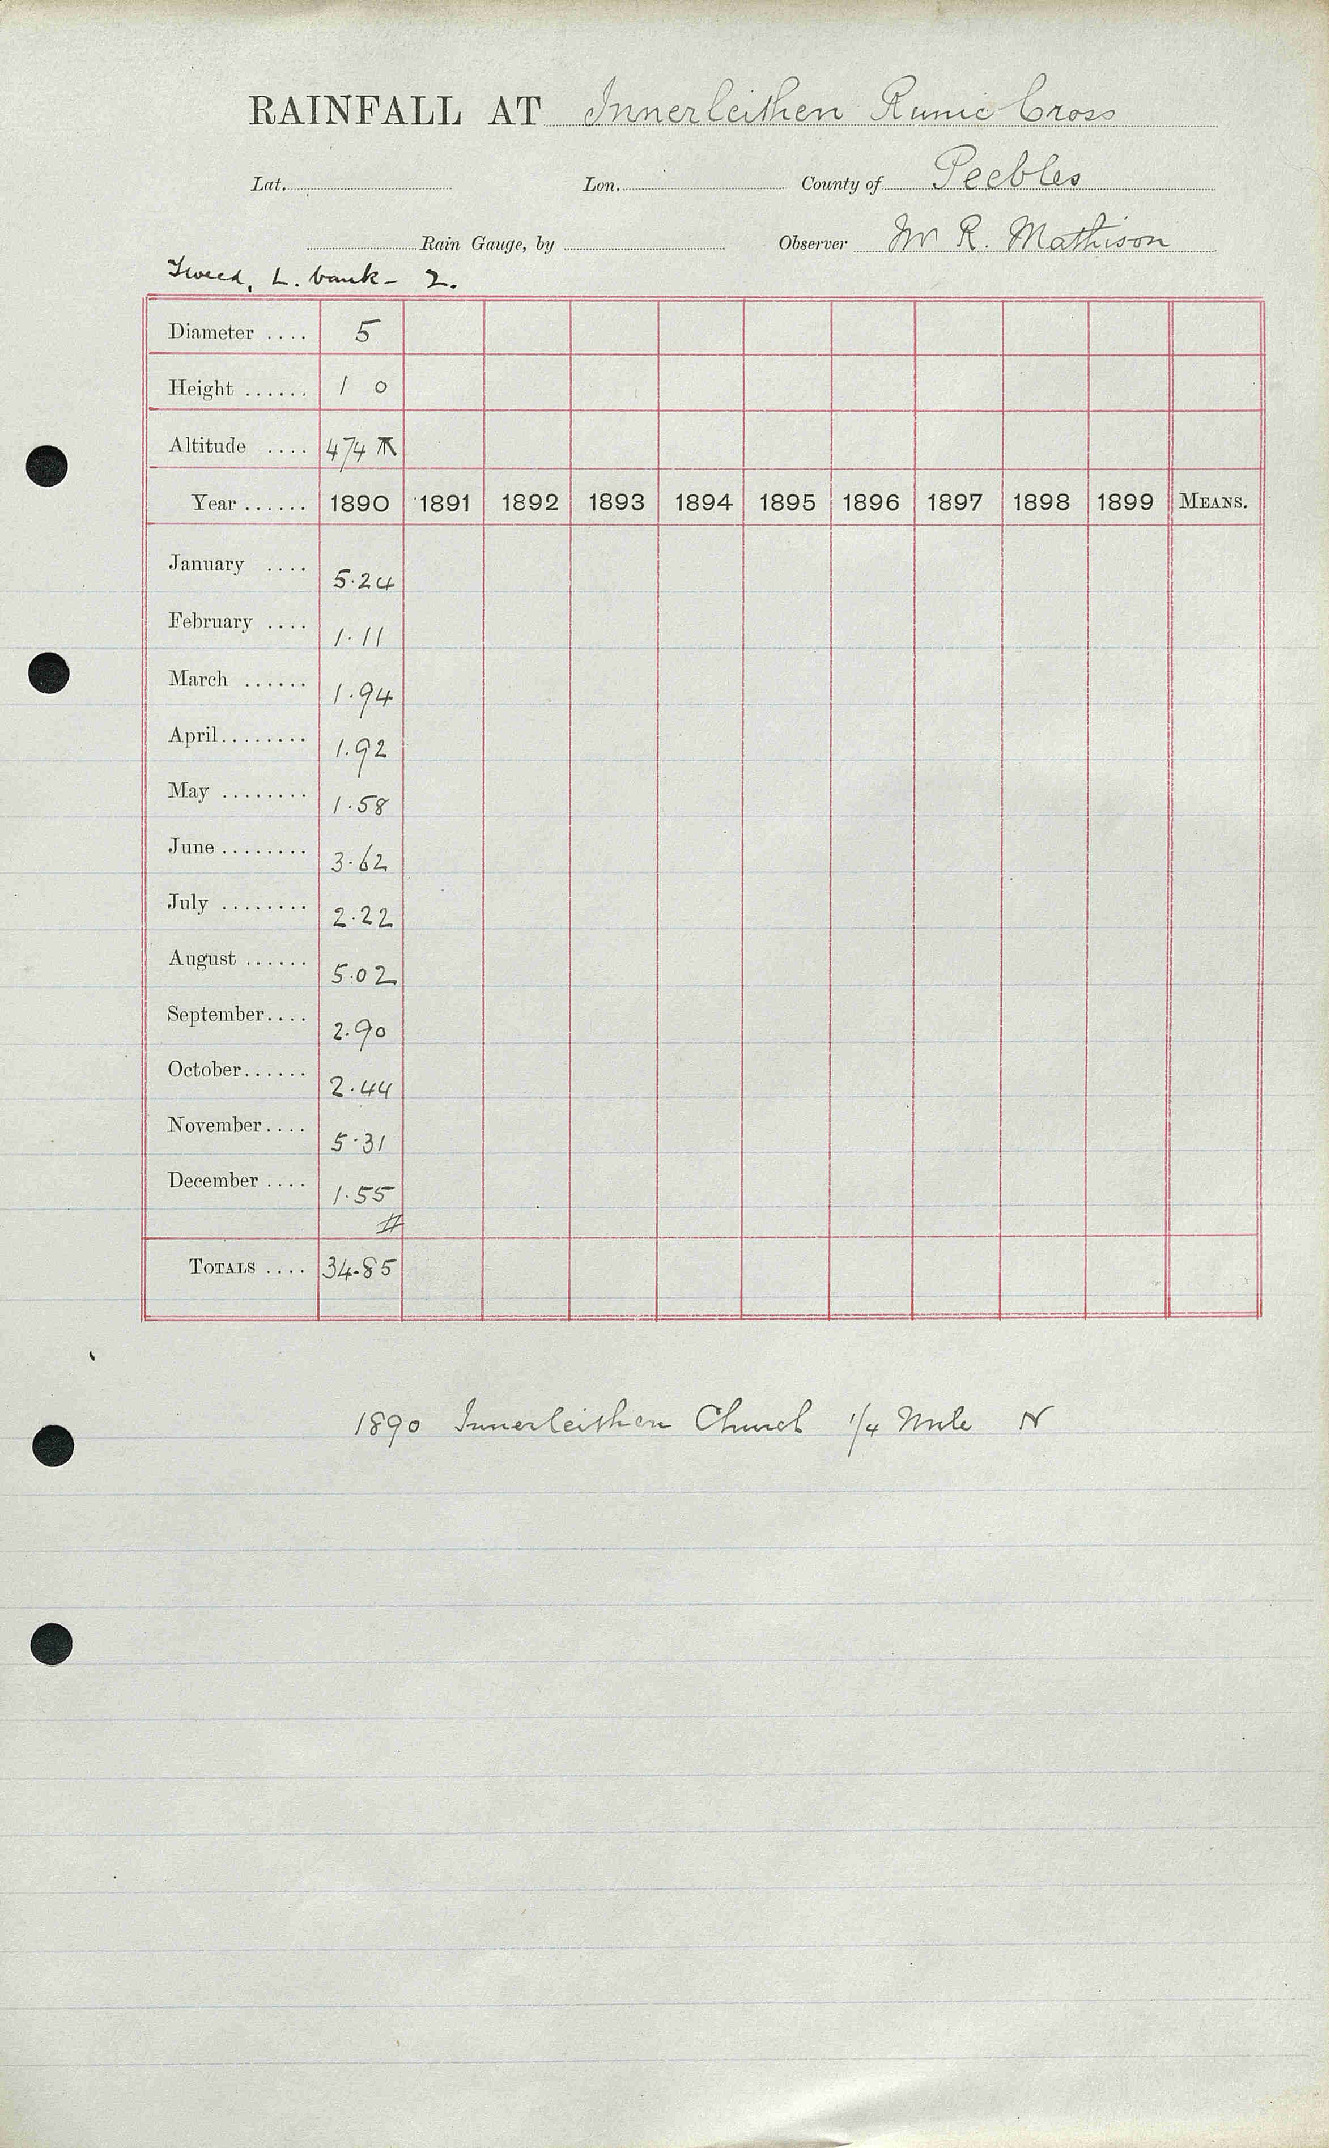 RAINFALL AT Innerleithen Runic Cross
Lat. Lon. County of Peebles
Rain Gauge, by Observer Mr R. Mathison
Tweed, L. bank - 2.
Diameter .... 5
Height ...... 1 0
Altitude .... 474
Year ...... 1890 1891 1892 1893 1894 1895 1896 1897 1898 1899 MEANS.
January .... 5.24
February .... 1.11
March ...... 1.94
April........ 1.92
May ........ 1.58
June ........ 3.62
July ........ 2.22
August ...... 5.02
September.... 2.90
October...... 2.44
November.... 5.31
December .... 1.55
#
TOTALS .... 34.85
1890 Innerleithen Church 1/4 Mile N